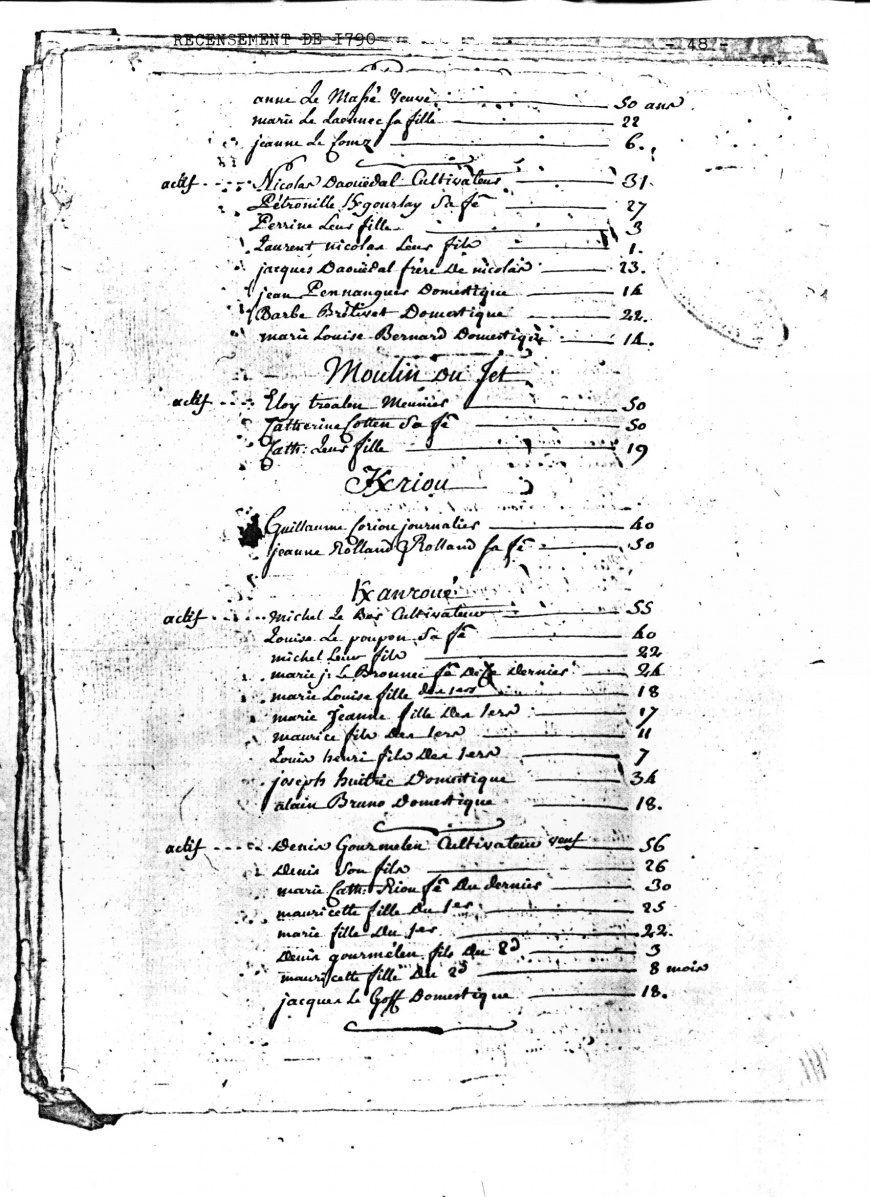 RECENSEMENT DE 1790 - 48 -
anne Le Massé Veuve 50 ans
marie Le Laounec sa fille 22
jeanne Le 6.
actif Nicolas Daouëdal Cultivateur 31
Pétronille Kgourlay Sa fe 27
Perrine Leur fille 3
Laurent nicolas Leur fils 1.
jacques Daouëdal frère De nicolas 23.
jean Pennanguer Domestique 14
Barbe Domestique 22.
marie Louise Bernard Domestique 14.
Moulin Du Jet
actif Eloy troalen Meunier 50
Catherine Cotten Sa fe 50
Cath: Leur fille 19
Keriou
Guillaume Coriou journalier 40
jeanne Rolland Rolland sa fe 50
Kanroué
actif michel Le Bes Cultivateur 55
Louise Le poupon Sa fe 40
michel Leur fils 22
marie j. Le Bronnec fe De Ce Dernier 24
marie Louise fille des 1ers 18
marie Jeanne fille Des 1ers 17
maurice fils Des 1ers 11
Louis henri fils Des 1ers 7
joseph huitric Domestique 34
alain Bruno Domestique 18.
actif Denis Gourmelen Cultivateur veuf 56
Denis Son fils 26
marie Cath: Riou fe Du dernier 30
mauricette fille Du 1er 25
marie fille Du 1er 22.
Denis gourmelen fils Du 2d 3
mauricette fille Du 2d 8 mois
jacques Le Goff Domestique 18.